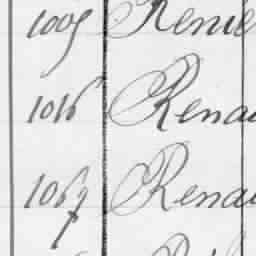 1005 Renie
1016 Renau
1067 Renau